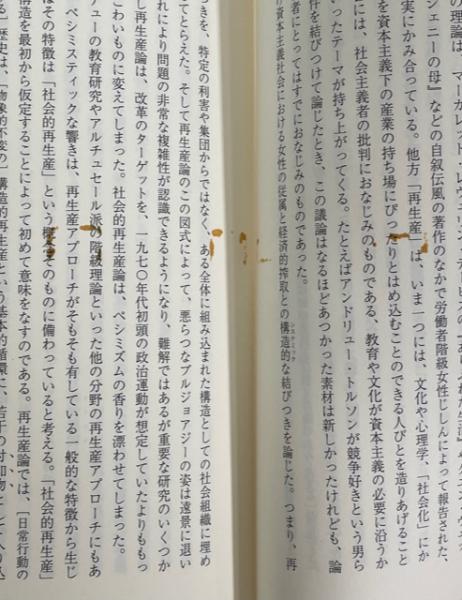 の理論は、マーガレット・レウェリン・
ジェニーの母』などの自叙伝風の著作のなかで労働者階級女性じしんによって報告された、
実にかみ合っている。他方「再生産」は、いま一つには、文化や心理学、「社会化」にか
を資本主義下の産業の持ち場にぴったりとはめ込むことのできる人びとを造りあげること
には、社会主義者の批判におなじみのものである、教育や文化が資本主義の必要に沿うか
いったテーマが持ち上がってくる。たとえばアンドリュー・トルソンが競争好きという男ら
件を結びつけて論じたとき、この議論はなるほどあつかった素材は新しかったけれども、論
者にとってはすでにおなじみのものであった。
の資本主義社会における女性の従属と経済的搾取との構造的な結びつきを論じた。つまり、再
らきを、特定の利害や集団からではなく、ある全体に組み込まれた構造としての社会組織に埋め
てとらえた。そして再生産論のこの図式によって、悪らつなブルジョアジーの姿は遠景に退い
れにより問題の非常な複雑性が認識できるようになり、難解ではあるが重要な研究のいくつか
再生産論は、改革のターゲットを、一九七〇年代初頭の政治運動が想定していたよりももっ
こわいものに変えてしまった。社会的再生産論は、ペシミズムの香りを漂わせてしまった。
チューの教育研究やアルチュセール派の階級理論といった他の分野の再生産アプローチにもあ
ペシミスティックな響きは、再生産アプローチがそもそも有している一般的な特徴から生じ
はその特徴は「社会的再生産」という概念そのものに備わっていると考える。「社会的再生産」
構造を最初から仮定することによって初めて意味をなすのである。再生産論では、［日常行動の
歴史は、［物象的不変の］構造的再生産という基本的循環に、若干の付加物として入り込